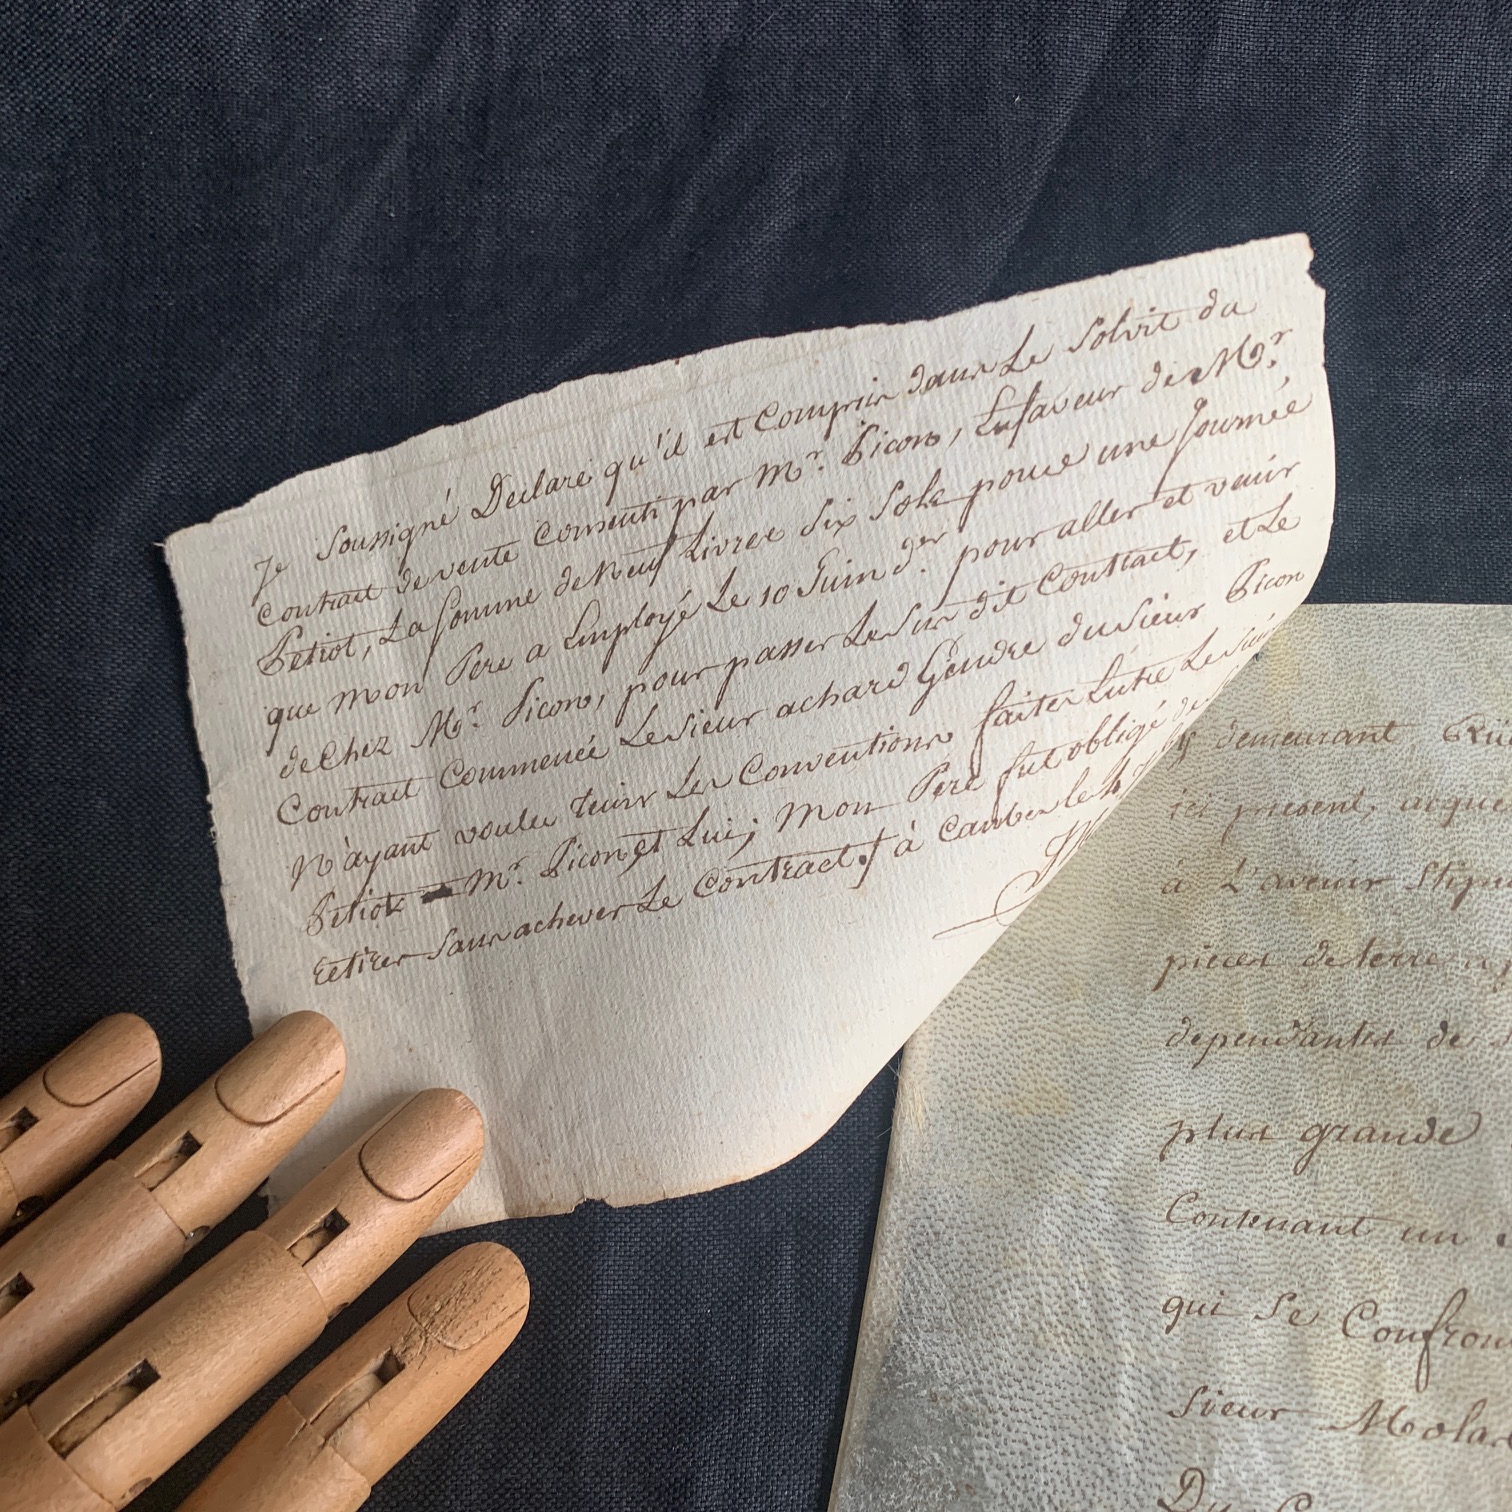 Je soussigné Declare qu'il est Compris dans Le Solvit du
Contract de vente Consenti par Mr. Picon, En faveur de Mgr.
Petiot, La somme de Neuf Livres Six Sols pour une Journée
que mon Pere a Employé Le 10 Juin der. pour aller et venir
de Chez Mgr. Picon, pour passer Le Sus dit Contract, et Le
Contract Commencé Le Sieur achard Gendre du Sieur Picon
N'ayant voulu tenir Les Conventions faites Entre Le Sr
Petiot Mr. Picon et Lui; Mon Pere fut obligé de
retirer Sans achever Le Contract. à Cambes le
demeurant
ici present, acque
à L'avenir Stipu
pieces de terre
dependantes de
plus grande
Contenant un
qui Se Confron
Sieur Molar
Du